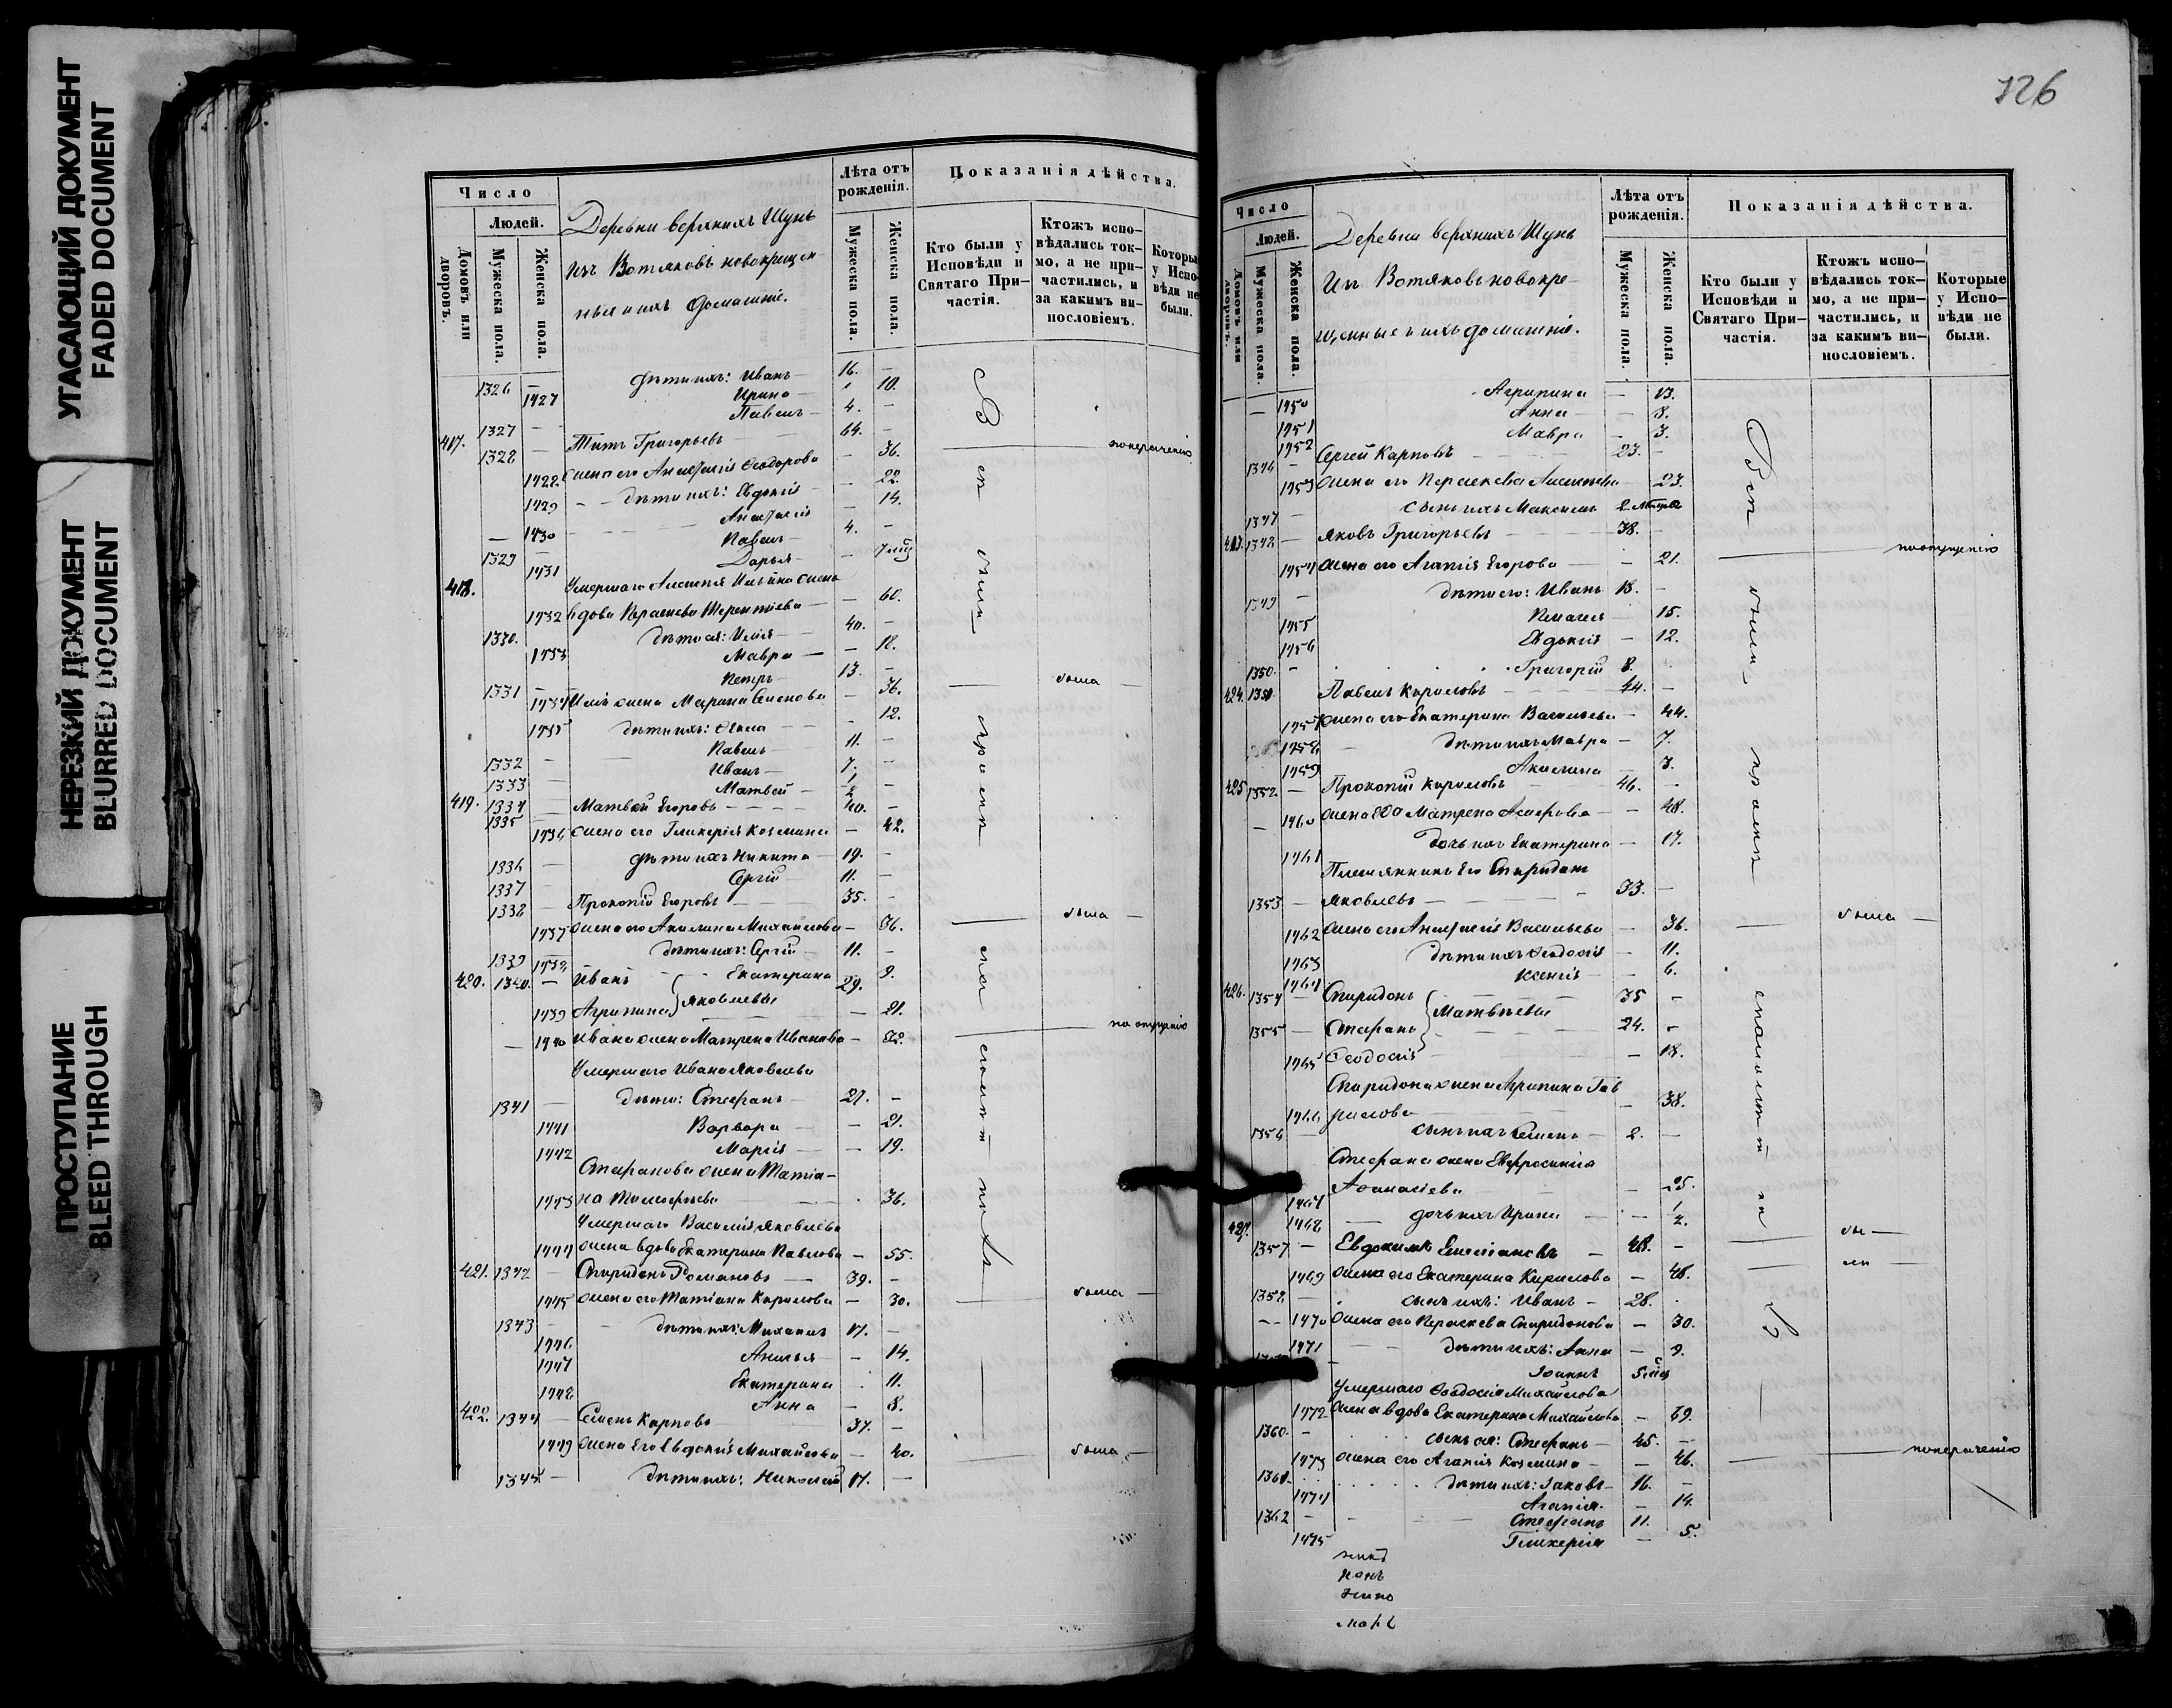 УГАСАЮЩИЙ ДОКУМЕНТ
FADED DOCUMENT
НЕРЕЗКИЙ ДОКУМЕНТ
BLURRED DOCUMENT
ПРОСТУПАНИЕ
BLEED THROUGH
Число
Людей.
Домовъ или дворовъ.
Мужеска пола.
Женска пола.
Деревни верхнихъ Шунь
изъ Вотяковъ новокрещен
ные и ихъ домашніе.
Лѣта отъ рожденія.
Мужеска пола.
Женска пола.
Показанія дѣйства.
Кто были у Исповѣди и Святаго Причастія.
Ктожъ исповѣдались токмо, а не причастились, и за какимъ винословіемъ.
Которые у Исповѣди не были.
1326 — дѣти ихъ: Иванъ — 16. —
1427 Ирина — 10.
1327 — Павелъ — 4. —
417. 1328 Титъ Григорьевъ — 64. —
1428 жена его Анастасія Ѳеодорова — 36.
1429 дѣти ихъ: Евдокія — 22.
— 1430 Анастасія — 14.
1329 — Павелъ — 4. —
1431 Дарья — 7 мѣс
418. Умершаго Алексѣя Ильина жена
1432 вдова Параскева Терентіева — 60.
1330. дѣти ея: Илія — 40. —
1433 Мавра — 18.
1331 — Петръ — 13. —
1434 Иліи жена Марина Семенова — 36. была
1435 дѣти ихъ: Ѳекла — 12.
1332 — Павелъ — 11. —
1333 — Иванъ — 7. —
1334 — Матвей — 1/2 —
419. 1335 Матвей Егоровъ — 40. —
1436 жена его Гликерія Козмина — 42.
1336 — дѣти ихъ Никита — 19. —
1337 — Сергій — 11. —
1338 — Прокопій Егоровъ — 35. —
1437 жена его Акилина Михайлова — 36. была
1339 дѣти ихъ: Сергій — 11. —
1438 Екатерина — 9.
420. 1340. — Иванъ 29.
1439 Агрипина } Яковлевы — 21.
— 1440 Ивана жена Матрена Иванова — 32. по опущенію
Умершаго Ивана Яковлева
1341 — дѣти: Стефанъ — 27. —
1441 Варвара — 21.
1442 Марія — 19.
Стефанова жена Татіа-
1443 на Тимофеева — 36.
Умершаго Василія Яковлева
1444 жена вдова Екатерина Павлова — 55.
421. 1342 — Спиридонъ Романовъ — 39. —
1445 жена его Татіана Кирилова — 30. была
1343 — дѣти ихъ: Михаилъ 17. —
1446 Анисья — 14.
1447 Екатерина 11.
1448 Анна — 8.
422. 1344 — Семенъ Карповъ 37. —
1449 жена его Евдокія Михайлова — 40. была
1345 — дѣти ихъ: Николай 17. —
Всѣ были прояснена сполитикѣ
126
Число
Людей.
Домовъ или дворовъ.
Мужеска пола.
Женска пола.
Деревни верхнихъ Шунь
Изъ Вотяковъ новокре-
щенные и ихъ домашніе.
Лѣта отъ рожденія.
Мужеска пола.
Женска пола.
Показанія дѣйства.
Кто были у Исповѣди и Святаго Причастія.
Ктожъ исповѣдались токмо, а не причастились, и за какимъ винословіемъ.
Которые у Исповѣди не были.
— 1450 Агрипина — 13.
1451 Анна — 8.
1452 Мавра — 3.
1346 — Сергей Карповъ 23. —
1453 жена его Параскева Алексѣева — 23.
1347 — сынъ ихъ Максимъ 2 мѣсяца
423. 1348 — Яковъ Григорьевъ 38. —
1454 жена его Агапія Егорова — 21. по опущенію
1349 — дѣти его: Иванъ 18. —
1455 Пелагея 15.
1456 Евдокія — 12.
1350. — Григорій 8.
424. 1351. Павелъ Кириловъ 44. —
1457 жена его Екатерина Васильева — 44.
1458 дѣти ихъ Мавра — 7.
1459 Акилина 3.
425. 1352. — Прокопій Кириловъ 46. —
— 1460 жена его Матрена Алферова — 48.
1461 дочь ихъ Екатерина — 17.
Племянникъ его Спиридонъ
1353 — Яковлевъ 33. —
1462 жена его Анастасія Васильева — 36. была
1463 дѣти ихъ Ѳеодосія — 11.
1464 Ксенія — 6.
426. 1354 — Спиридонъ 35 —
1355 — Стефанъ } Матвѣевы 24. —
1465 Ѳеодосія — 18.
Спиридона жена Агрипина Гав
1466 рилова — 38.
1356 — сынъ ихъ Семенъ 2. —
Стефана жена Евфросинія
1467 Аѳанасіева — 25.
1468 дочь ихъ Ирина — 1/2.
427. 1357 — Евдокимъ Емеліановъ — 48. — бы
1469 жена его Екатерина Кирилова — 48. ли
1358 — сынъ ихъ: Иванъ — 28.
1470 жена его Параскева Спиридонова — 30.
1471 дѣти ихъ: Анна — 9.
Іоаннъ 5 мѣс
Умершаго Ѳеодосія Михайлова
1472 жена вдова Екатерина Михайлова — 69.
1360. — сынъ ея: Стефанъ 45. —
1473 жена его Агапія Козмина — 46. по нераченію
1361. дѣти ихъ: Іаковъ 16. —
1474 Агапія — 14.
1362 — Стефанъ 11.
1475 Гликерія — 5.